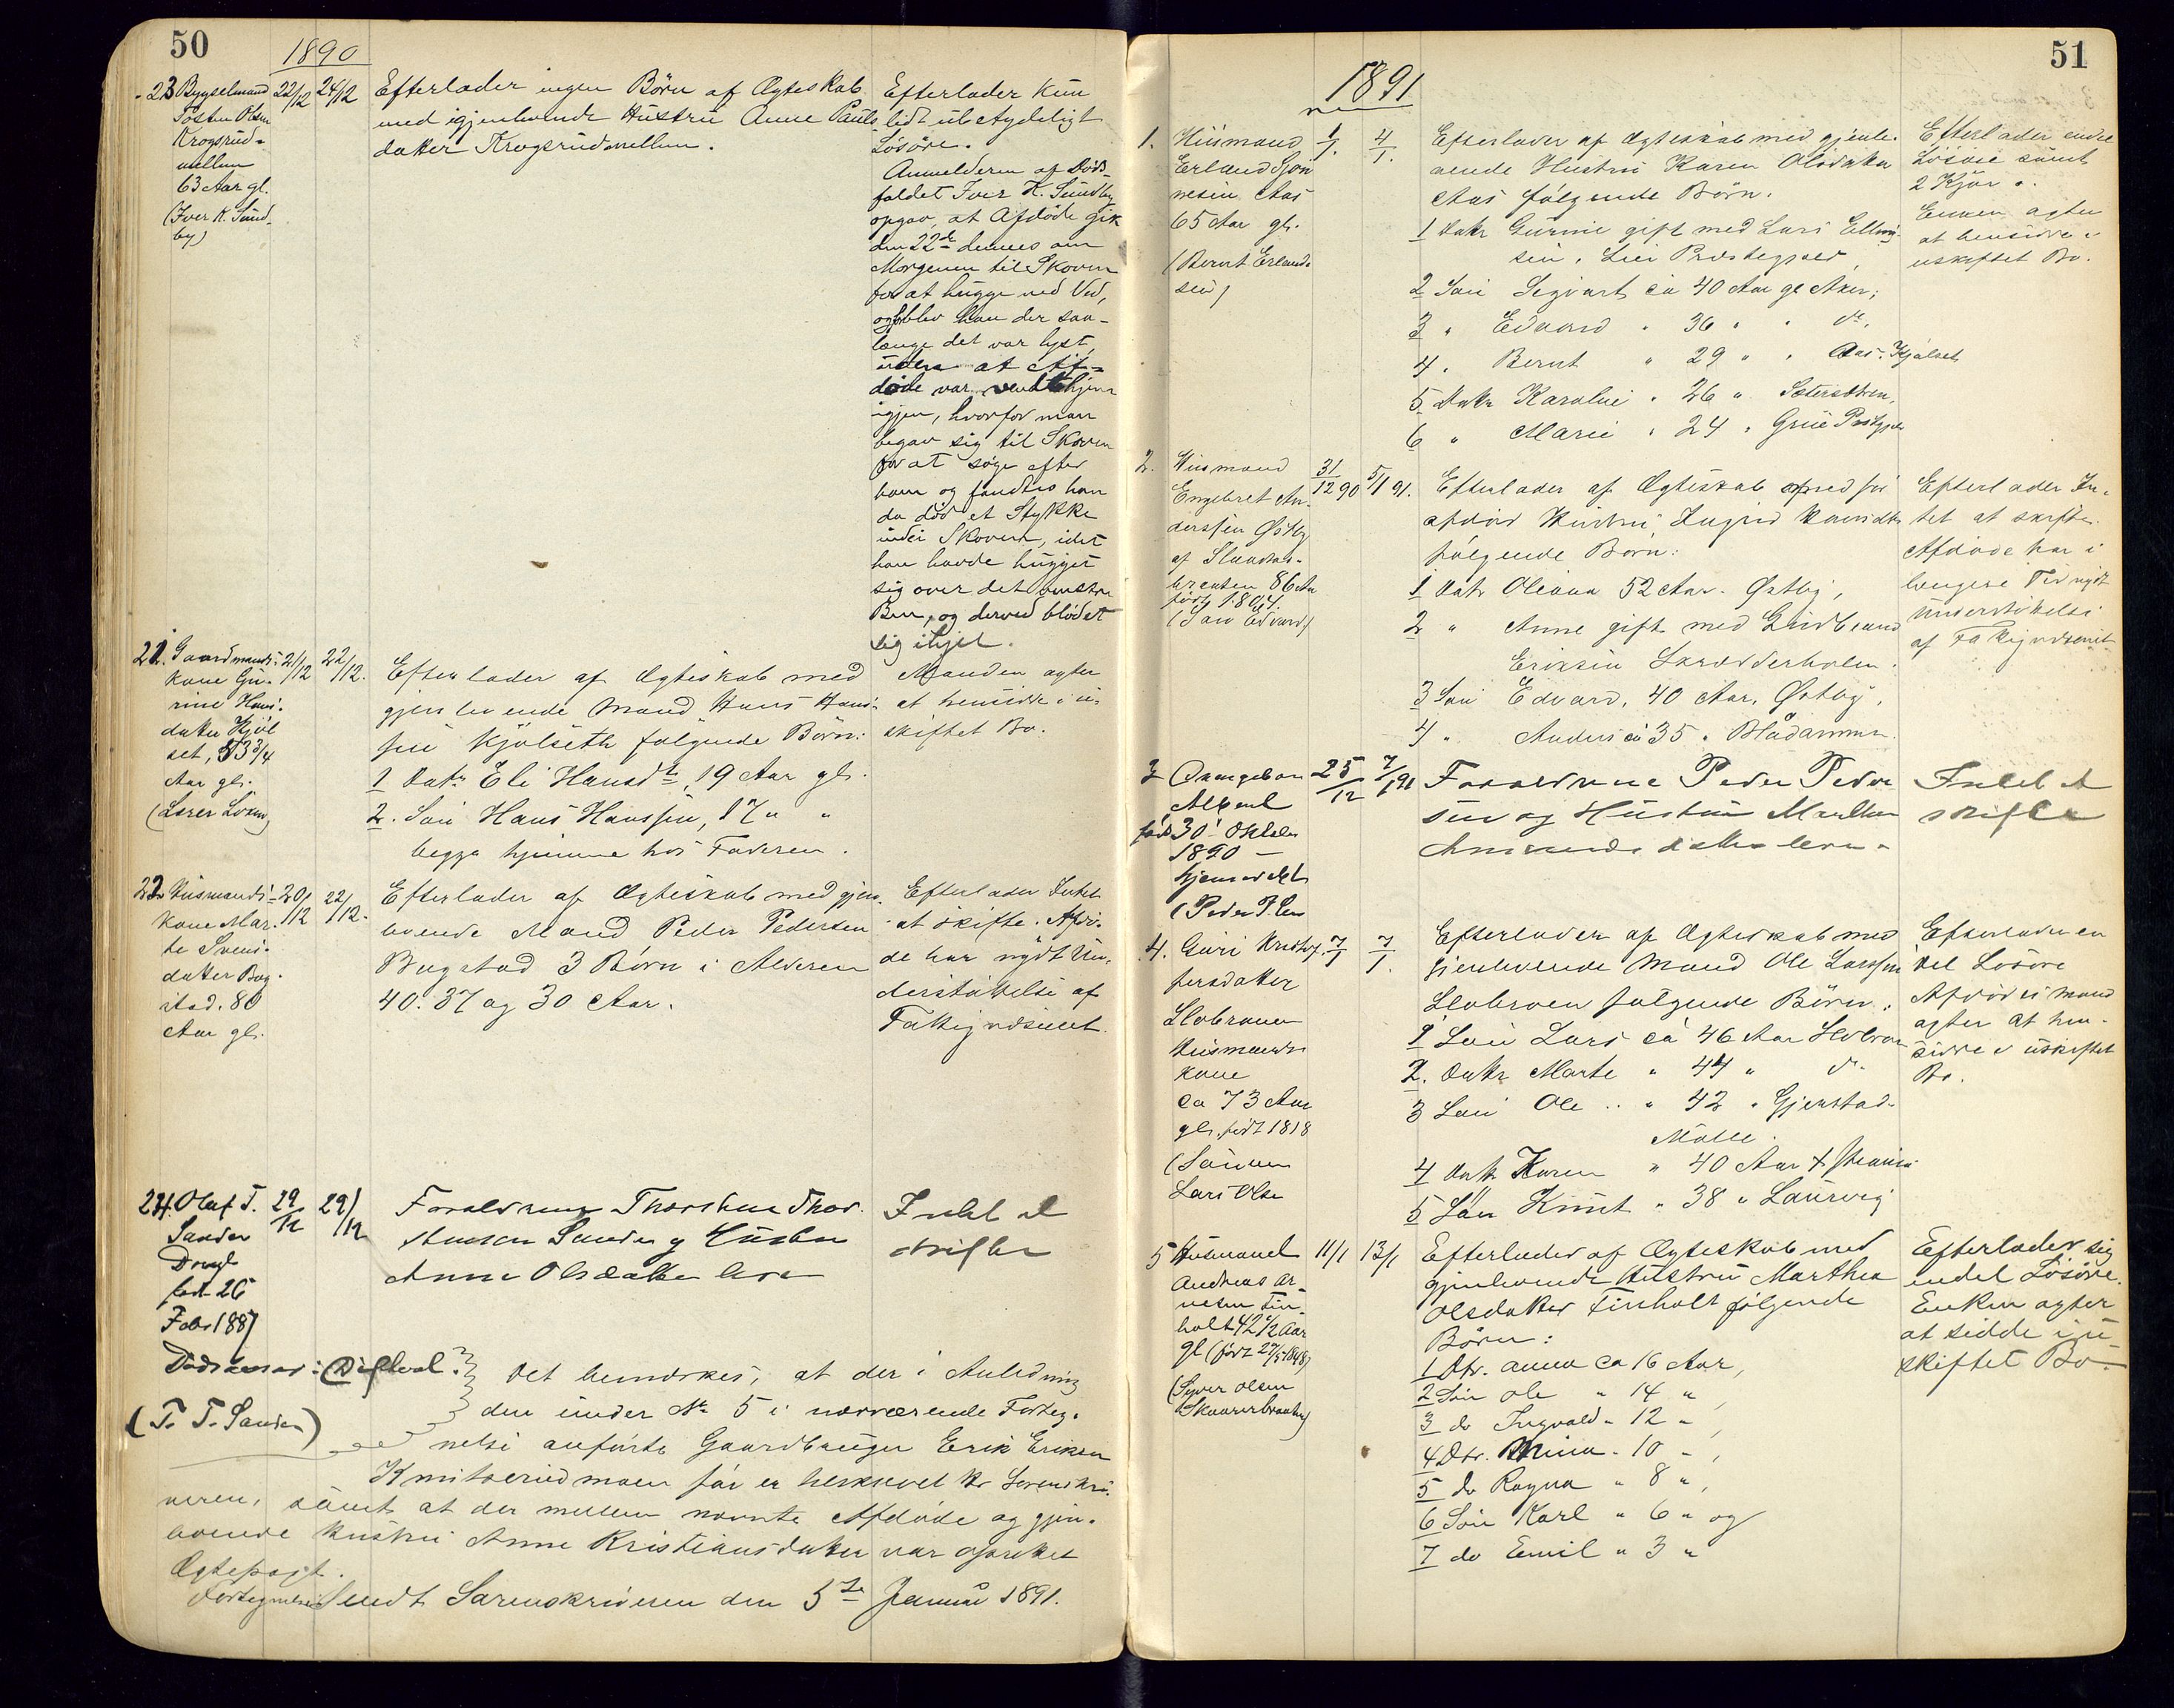 50
1890
23 Bygselmand 22/12 24/12
Tosten Olsen
Krogsrud-
mellum
63 Aar gl.
(Iver K. Sund-
by)
Efterlader ingen Børn af Ægteskab
med igjenlevende Hustru Anne Pauls-
datter Krogsrudmellum.
Efterlader kun
lidt ubetydeligt
Løsøre.
Anmelderen af Døds-
faldet Iver K. Sundby
opgav, at Afdøde gik
den 22de dennes om
Morgenen til Skoven
for at hugge ned Ved,
og blev han der saa-
længe det var lyst,
uden at Af-
døde var vendt hjem
igjen, hvorfor man
begav sig til Skoven
for at søge efter
ham og fandtes han
da død et Stykke
inde i Skoven, idet
han havde hugget
sig over det venstre
Ben, og derved blødet
sig ihjel.
21. Gaardmands- 21/12 22/12.
kone Gu-
rine Hans-
datter Kjøl
set, 53 3/4
Aar gl.
Efterlader af Ægteskab med
gjenlevende Mand Hans Hans-
sen Kjølseth følgende Børn:
1 Datr Eli Hansdt, 19 Aar gl.
2. Søn Hans Hanssen, 17 " "
begge hjemme hos Faderen.
Manden agter
at hensidde i u-
skiftet Bo.
22 Husmands- 20/12 22/12.
kone Mar-
te Svens-
datter Bog-
stad. 80
Aar gl.
Efterlader af Ægteskab med gjen-
levende Mand Peder Pedersen
Bogstad 3 Børn i Alderen
40. 37 og 30 Aar.
Efterlader Intet
at skifte. Afdø-
de har nydt Un-
derstøttelse af
Fattigvæsenet.
24. Olaf T. 29/12 29/12
Sander
Dreng
født 26
Febr 1887
Dødsaarsag: Difterit.
(T. T. Sander)
Forældrene Thorsten Thor-
stensen Sander og Hustru
Anne Olsdatter leve
Intet at
skifte
Det bemærkes, at der i Anledning
den under No 5 i nærværende Forteg-
nelse anførte Gaardbruger Erik Eriksen
Knutserudmoen før er beskrevet Hr Sorenskri-
veren, samt at der mellem nævnte Afdøde og gjen-
levende Hustru Anne Kristiansdatter var oprettet
Ægtepagt.
Fortegnelse Sendt Sorenskriveren den 5te Januar 1891.
51
1891
1. Husmand 1/1. 4/1.
Erland
Aas
65 Aar gl.
(Bernt Erland-
sen)
Efterlader af Ægteskab med gjenle-
vende Hustru Karen Olsdatter
Aas følgende Børn.
1 Datr Gurine gift med Lars Elling-
sen,
2 Søn Sigvart ca 40 Aar gl Aker;
3 " Edvard " 36 " " do,
4. Bernt " 29 " " Aas-Kjølset
5 Datr Karoline " 26 "
6 " Marie " 24 " Grue Præstgjeld
Efterlader endel
Løsøre samt
2 Kjør.
Enken agter
at hensidde i
uskiftet Bo.
2. Husmand 31/12 90 5/1 91.
Engebret An-
derssen Østby
86 Aar
født 1804.
(Søn Edvard)
Efterlader af Ægteskab med før
afdød Hustru Ingrid
følgende Børn:
1 Datr Oleana 52 Aar. Østby,
2 " Anne gift med Gudbrand
Eriksen Skrædderholen.
3 Søn Edvard, 40 Aar, Østby,
4 " Anders ca 35 "
Efterlader In-
tet at skifte.
Afdøde har i
længere Tid nydt
Understøttelse
af Fattigvæsenet
3 25/12 7/1 91
født 30 Oktober
1890 -
hjemmedøbt
(Peder P.
Forældrene Peder Peder
sen og Hustru Marthe
leve.
Intet at
skifte
4. Guri Kristof- 7/1 7/1.
fersdatter
Husmands
kone
ca 73 Aar
gl. født 1818
(Sønnen
Lars Olsen
Efterlader af Ægteskab med
gjenlevende Mand Ole Larssen
følgende Børn:
1 Søn Lars ca 46 Aar
2. Datr Marte " 44 " do
3 Søn Ole " " 42 " Gjerstad-
Mølle.
4 Datr Karen " 40 Aar
5 Søn Knut " 38 " Laurvig
Efterlader en
del Løsøre
Afdødes Mand
agter at hen-
sidde i uskiftet
Bo.
5 Husmand 11/1 13/1
Andreas Ar-
nesen Fin-
holt 42 1/2 Aar
gl (født 27/5 1848)
(Syver Olsen
Skaarerbraaten)
Efterlader af Ægteskab med
gjenlevende Hustru Marthea
Olsdatter Finholt følgende
Børn:
1 Dtr. Anna ca 16 Aar,
2 Søn Ole " 14 ",
3 do Ingvald " 12 ",
4 Dtr. Mina " 10 ",
5 do Ragna " 8 ",
6 Søn Karl " 6 " og
7 do Emil " 3 "
Efterlader sig
endel Løsøre.
Enken agter
at sidde i u-
skiftet Bo.